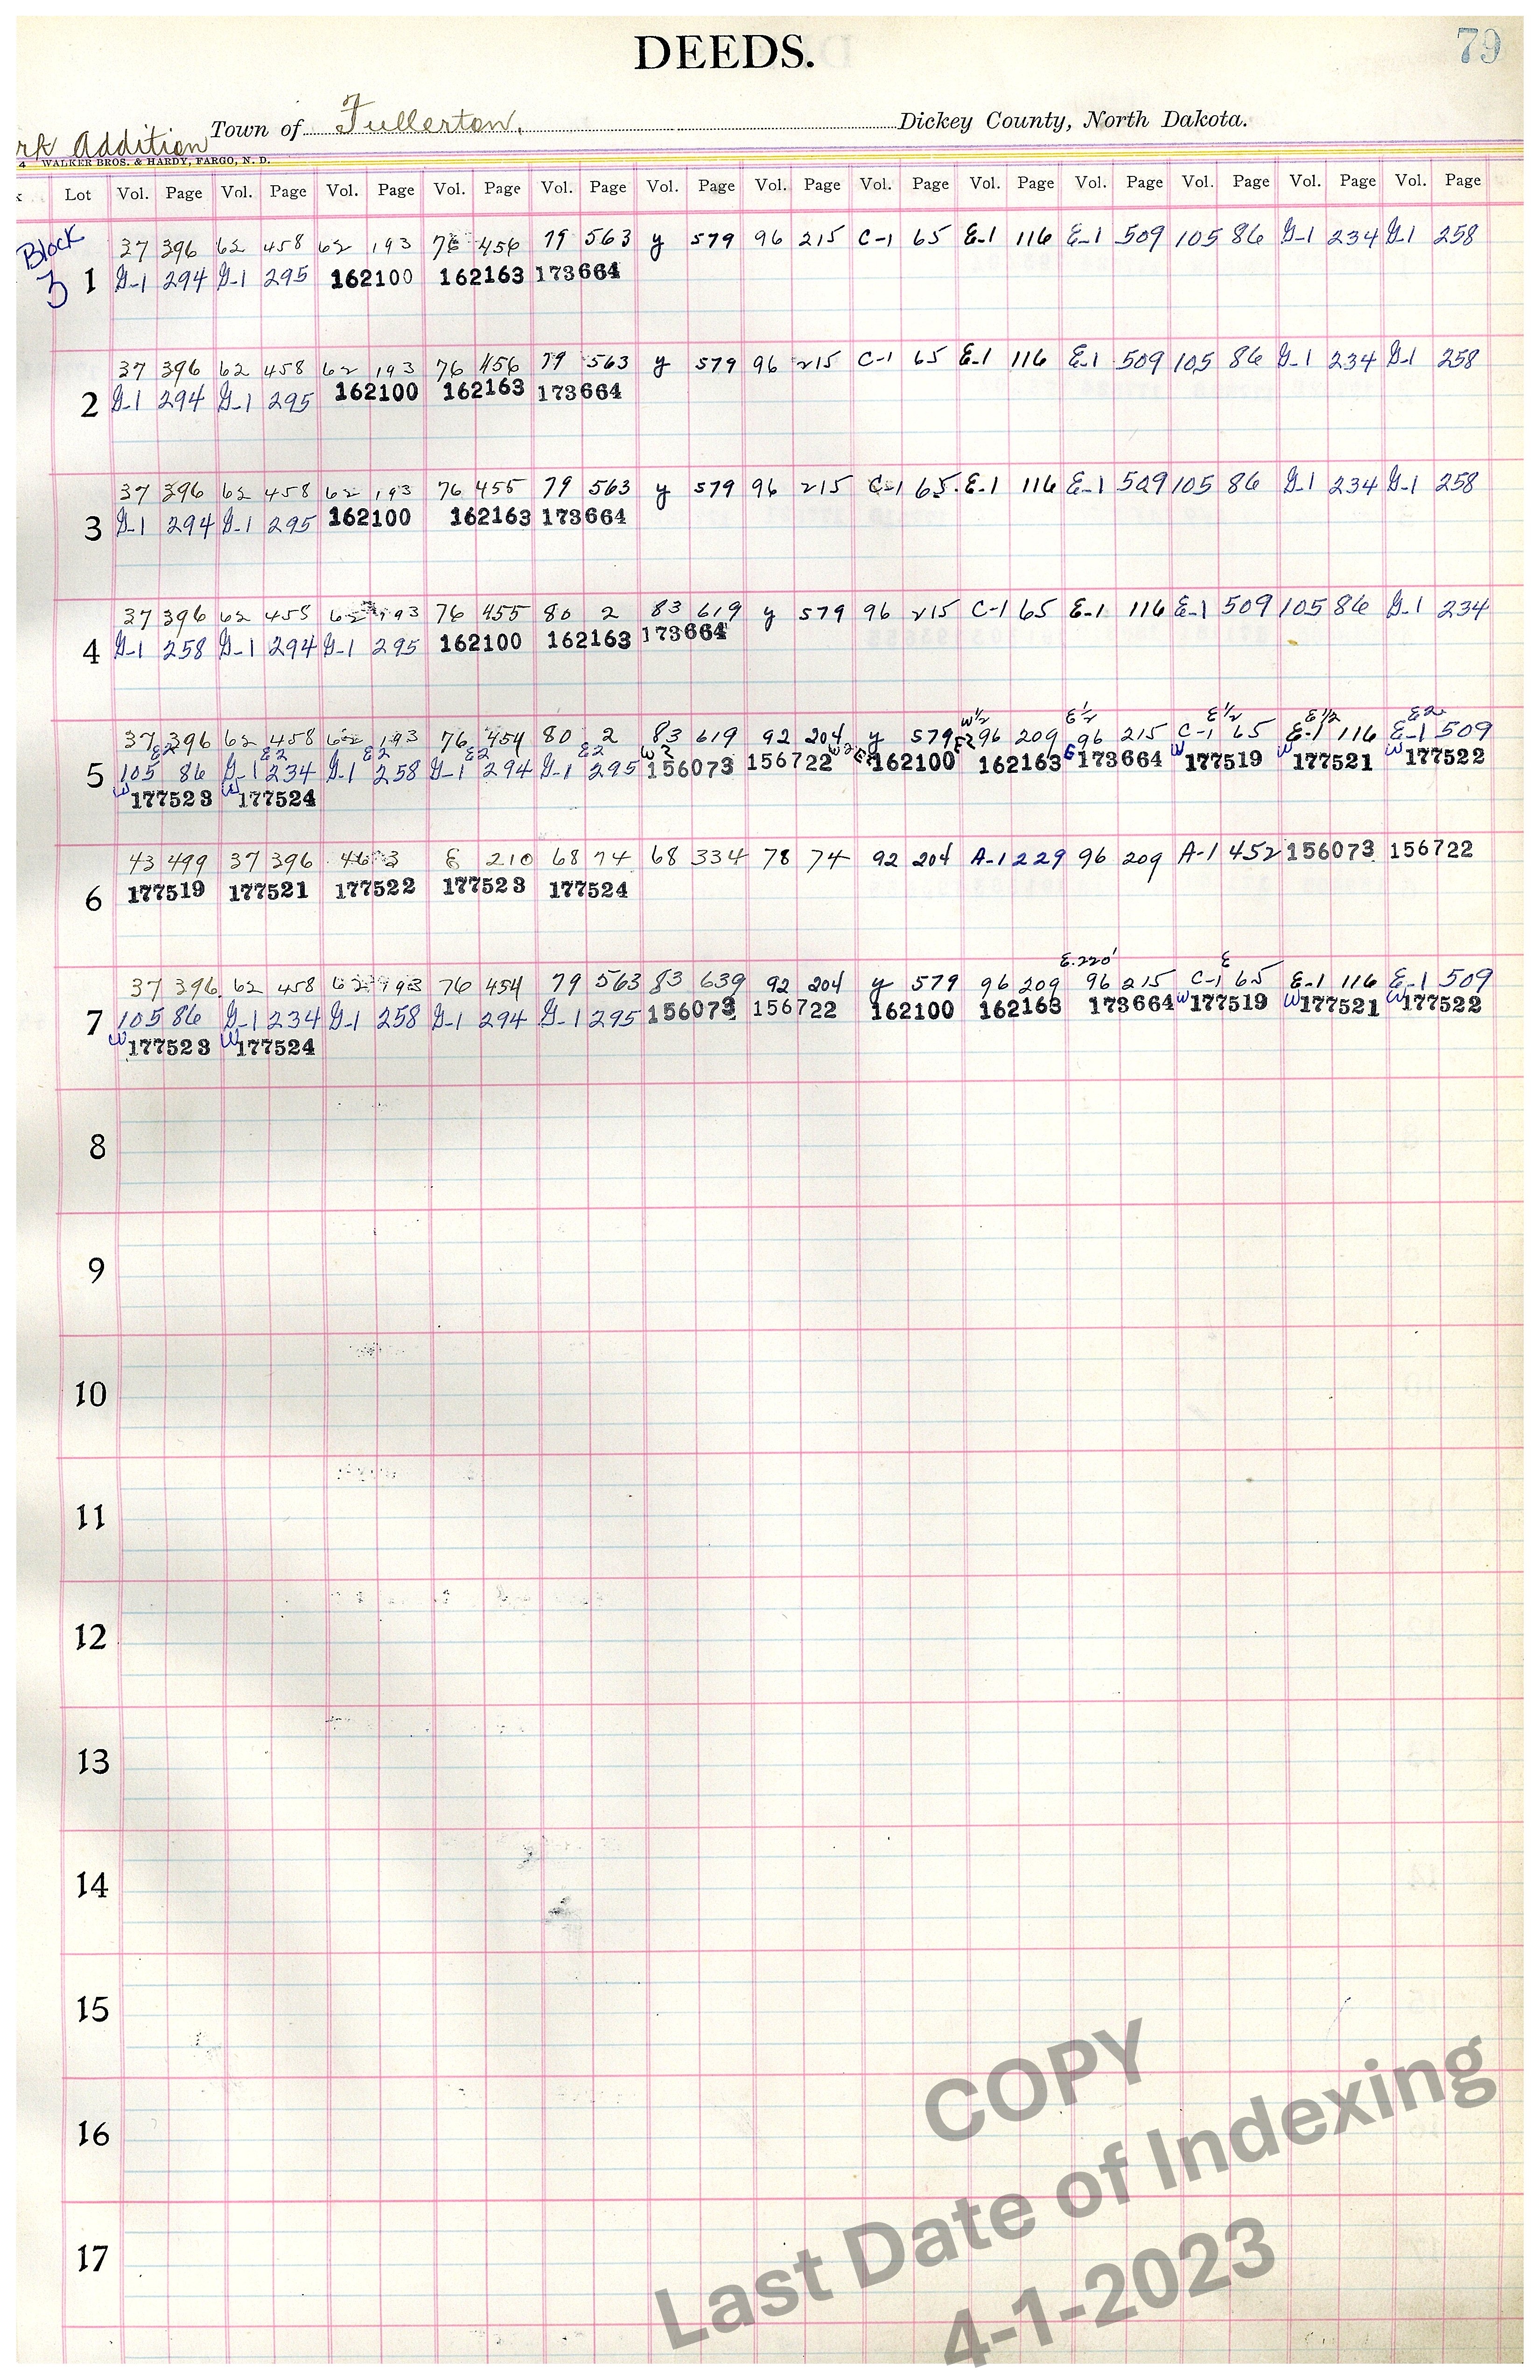 DEEDS.
79
rk Addition Town of Fullerton. Dickey County, North Dakota.
4 WALKER BROS. & HARDY, FARGO, N. D.
k Lot Vol. Page Vol. Page Vol. Page Vol. Page Vol. Page Vol. Page Vol. Page Vol. Page Vol. Page Vol. Page Vol. Page Vol. Page Vol. Page
Block
3
37 396 62 458 62 193 76 456 79 563 y 579 96 215 C-1 65 E-1 116 E-1 509 105 86 G-1 234 G-1 258
1 G-1 294 G-1 295 162100 162163 173664
37 396 62 458 62 193 76 456 79 563 y 579 96 215 C-1 65 E-1 116 E-1 509 105 86 G-1 234 G-1 258
2 G-1 294 G-1 295 162100 162163 173664
37 396 62 458 62 193 76 455 79 563 y 579 96 215 C-1 65 E-1 116 E-1 509 105 86 G-1 234 G-1 258
3 G-1 294 G-1 295 162100 162163 173664
37 396 62 458 62 193 76 455 80 2 83 619 y 579 96 215 C-1 65 E-1 116 E-1 509 105 86 G-1 234
4 G-1 258 G-1 294 G-1 295 162100 162163 173664
W½ E½ E½ E½ E2
37 396 62 458 62 193 76 454 80 2 83 619 92 204 y 579 96 209 96 215 C-1 65 E-1 116 E-1 509
E2 E2 E2 E2 E2 W2 W2 E2 E2 E W W W
5 105 86 G-1 234 G-1 258 G-1 294 G-1 295 156073 156722 162100 162163 173664 177519 177521 177522
W 177523 W 177524
43 499 37 396 46 3 E 210 68 74 68 334 78 74 92 204 A-1 229 96 209 A-1 452 156073 156722
6 177519 177521 177522 177523 177524
E.220' E
37 396 62 458 62 193 76 454 79 563 83 639 92 204 y 579 96 209 96 215 C-1 65 E-1 116 E-1 509
7 105 86 G-1 234 G-1 258 G-1 294 G-1 295 156073 156722 162100 162163 173664 W 177519 W 177521 W 177522
W 177523 W 177524
8
9
10
11
12
13
14
15
16
17
COPY
Last Date of Indexing
4-1-2023